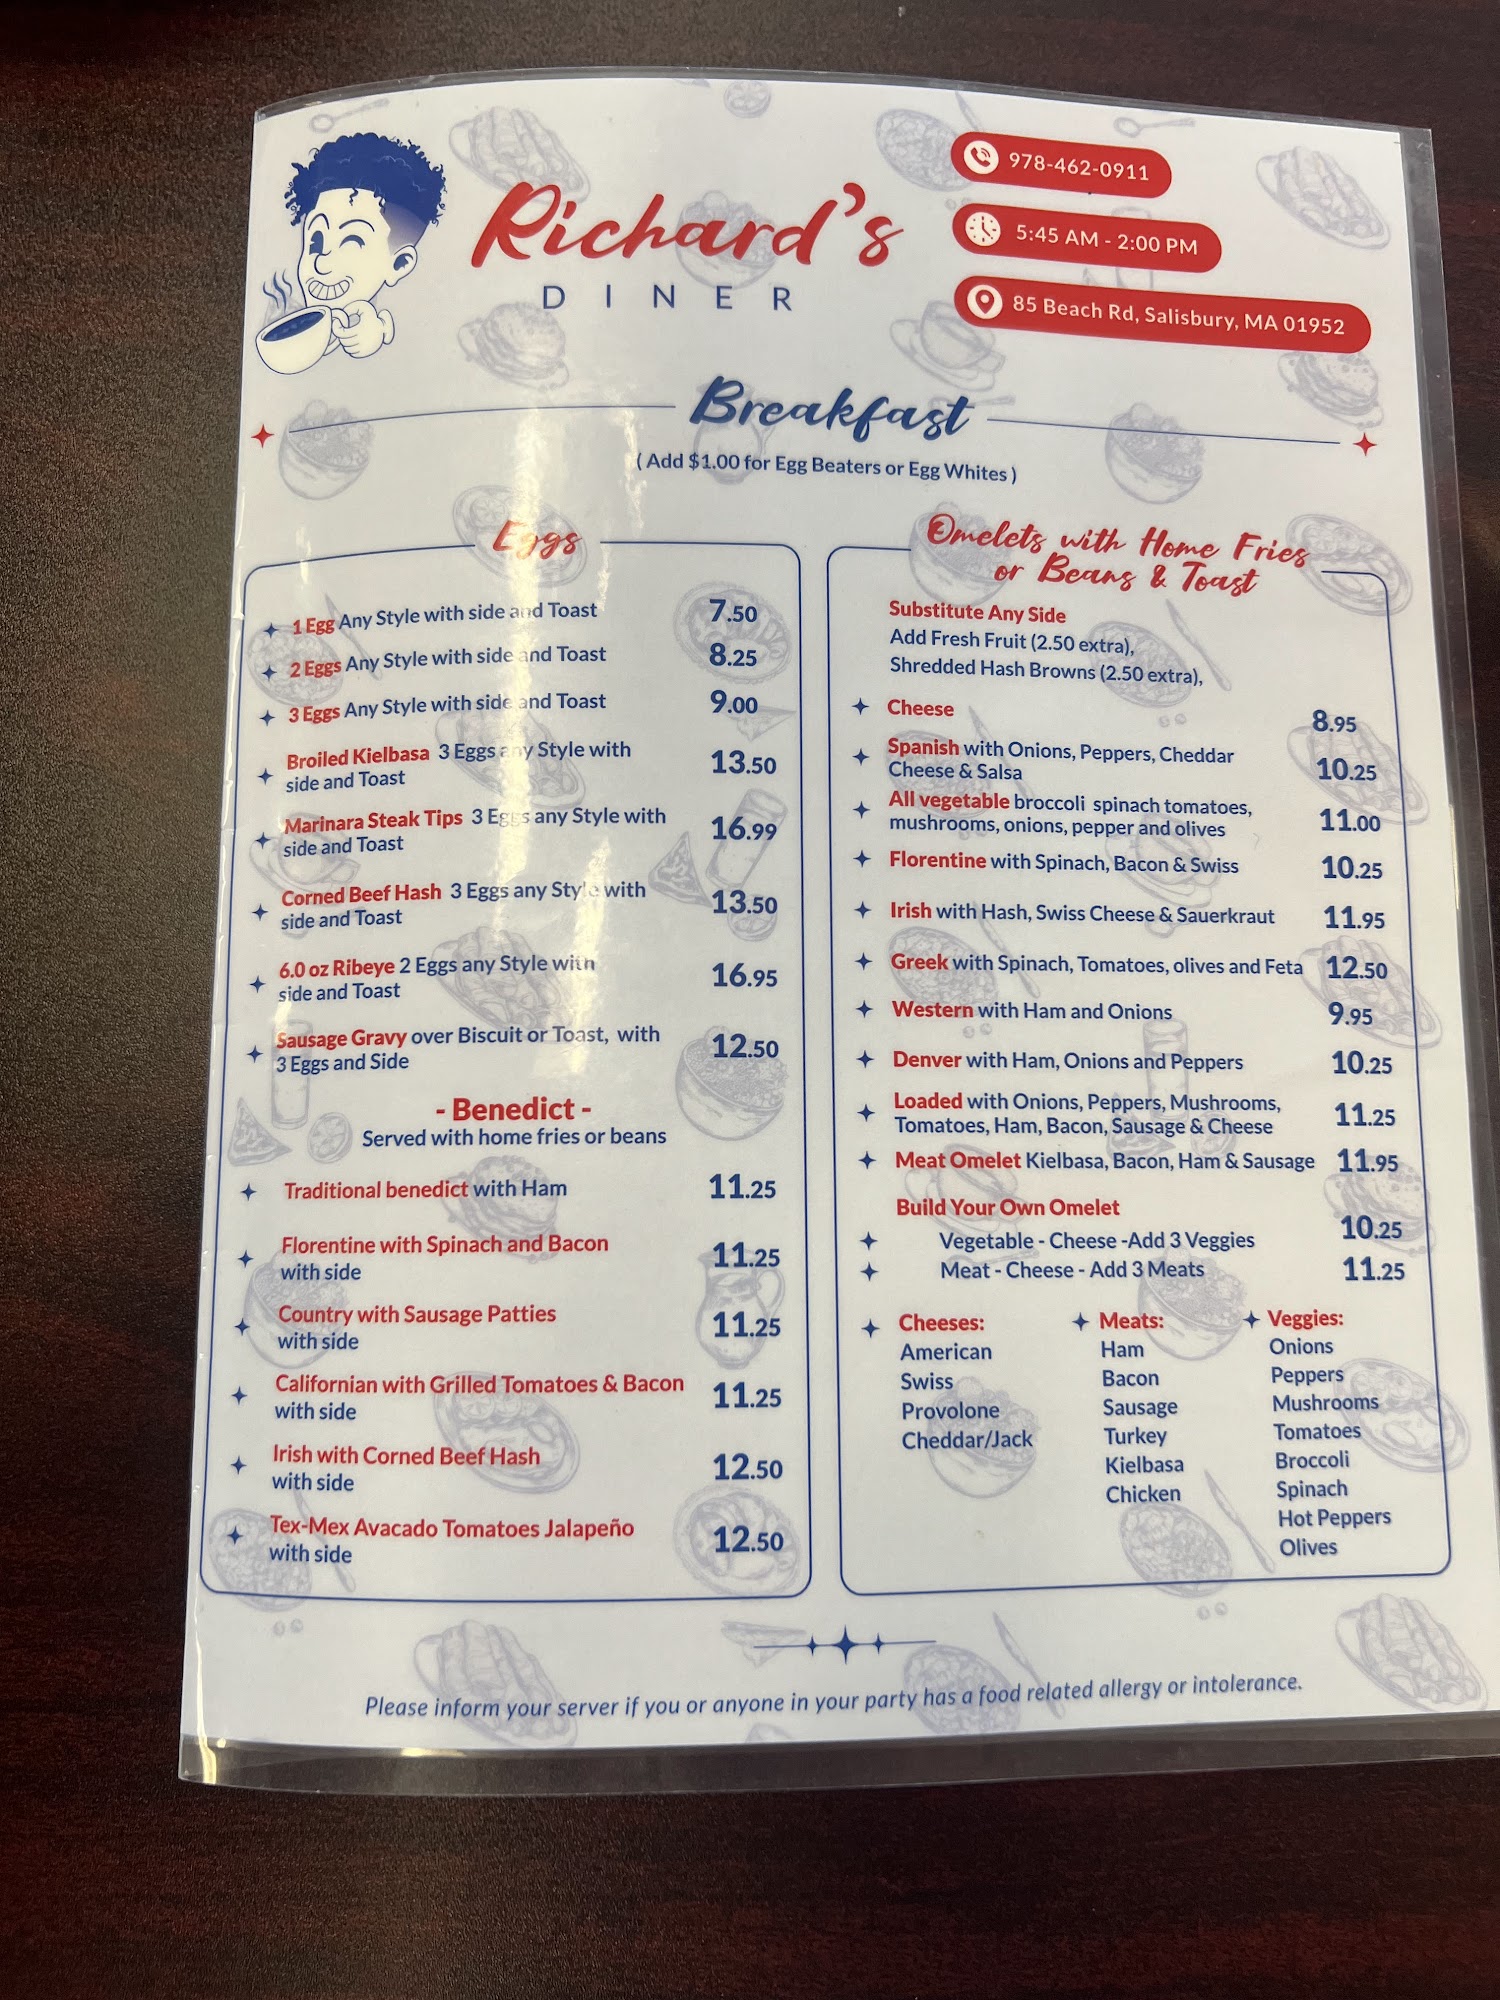 Richard's
DINER
978-462-0911
5:45 AM - 2:00 PM
85 Beach Rd, Salisbury, MA 01952
Breakfast
( Add $1.00 for Egg Beaters or Egg Whites )
Eggs
1 Egg Any Style with side and Toast 7.50
2 Eggs Any Style with side and Toast 8.25
3 Eggs Any Style with side and Toast 9.00
Broiled Kielbasa 3 Eggs any Style with
side and Toast 13.50
Marinara Steak Tips 3 Eggs any Style with
side and Toast 16.99
Corned Beef Hash 3 Eggs any Style with
side and Toast 13.50
6.0 oz Ribeye 2 Eggs any Style with
side and Toast 16.95
Sausage Gravy over Biscuit or Toast, with
3 Eggs and Side 12.50
- Benedict -
Served with home fries or beans
Traditional benedict with Ham 11.25
Florentine with Spinach and Bacon
with side 11.25
Country with Sausage Patties
with side 11.25
Californian with Grilled Tomatoes & Bacon
with side 11.25
Irish with Corned Beef Hash
with side 12.50
Tex-Mex Avacado Tomatoes Jalapeño
with side 12.50
Omelets with Home Fries
or Beans & Toast
Substitute Any Side
Add Fresh Fruit (2.50 extra),
Shredded Hash Browns (2.50 extra),
Cheese 8.95
Spanish with Onions, Peppers, Cheddar
Cheese & Salsa 10.25
All vegetable broccoli spinach tomatoes,
mushrooms, onions, pepper and olives 11.00
Florentine with Spinach, Bacon & Swiss 10.25
Irish with Hash, Swiss Cheese & Sauerkraut 11.95
Greek with Spinach, Tomatoes, olives and Feta 12.50
Western with Ham and Onions 9.95
Denver with Ham, Onions and Peppers 10.25
Loaded with Onions, Peppers, Mushrooms,
Tomatoes, Ham, Bacon, Sausage & Cheese 11.25
Meat Omelet Kielbasa, Bacon, Ham & Sausage 11.95
Build Your Own Omelet
Vegetable - Cheese -Add 3 Veggies 10.25
Meat - Cheese - Add 3 Meats 11.25
Cheeses:
American
Swiss
Provolone
Cheddar/Jack
Meats:
Ham
Bacon
Sausage
Turkey
Kielbasa
Chicken
Veggies:
Onions
Peppers
Mushrooms
Tomatoes
Broccoli
Spinach
Hot Peppers
Olives
Please inform your server if you or anyone in your party has a food related allergy or intolerance.